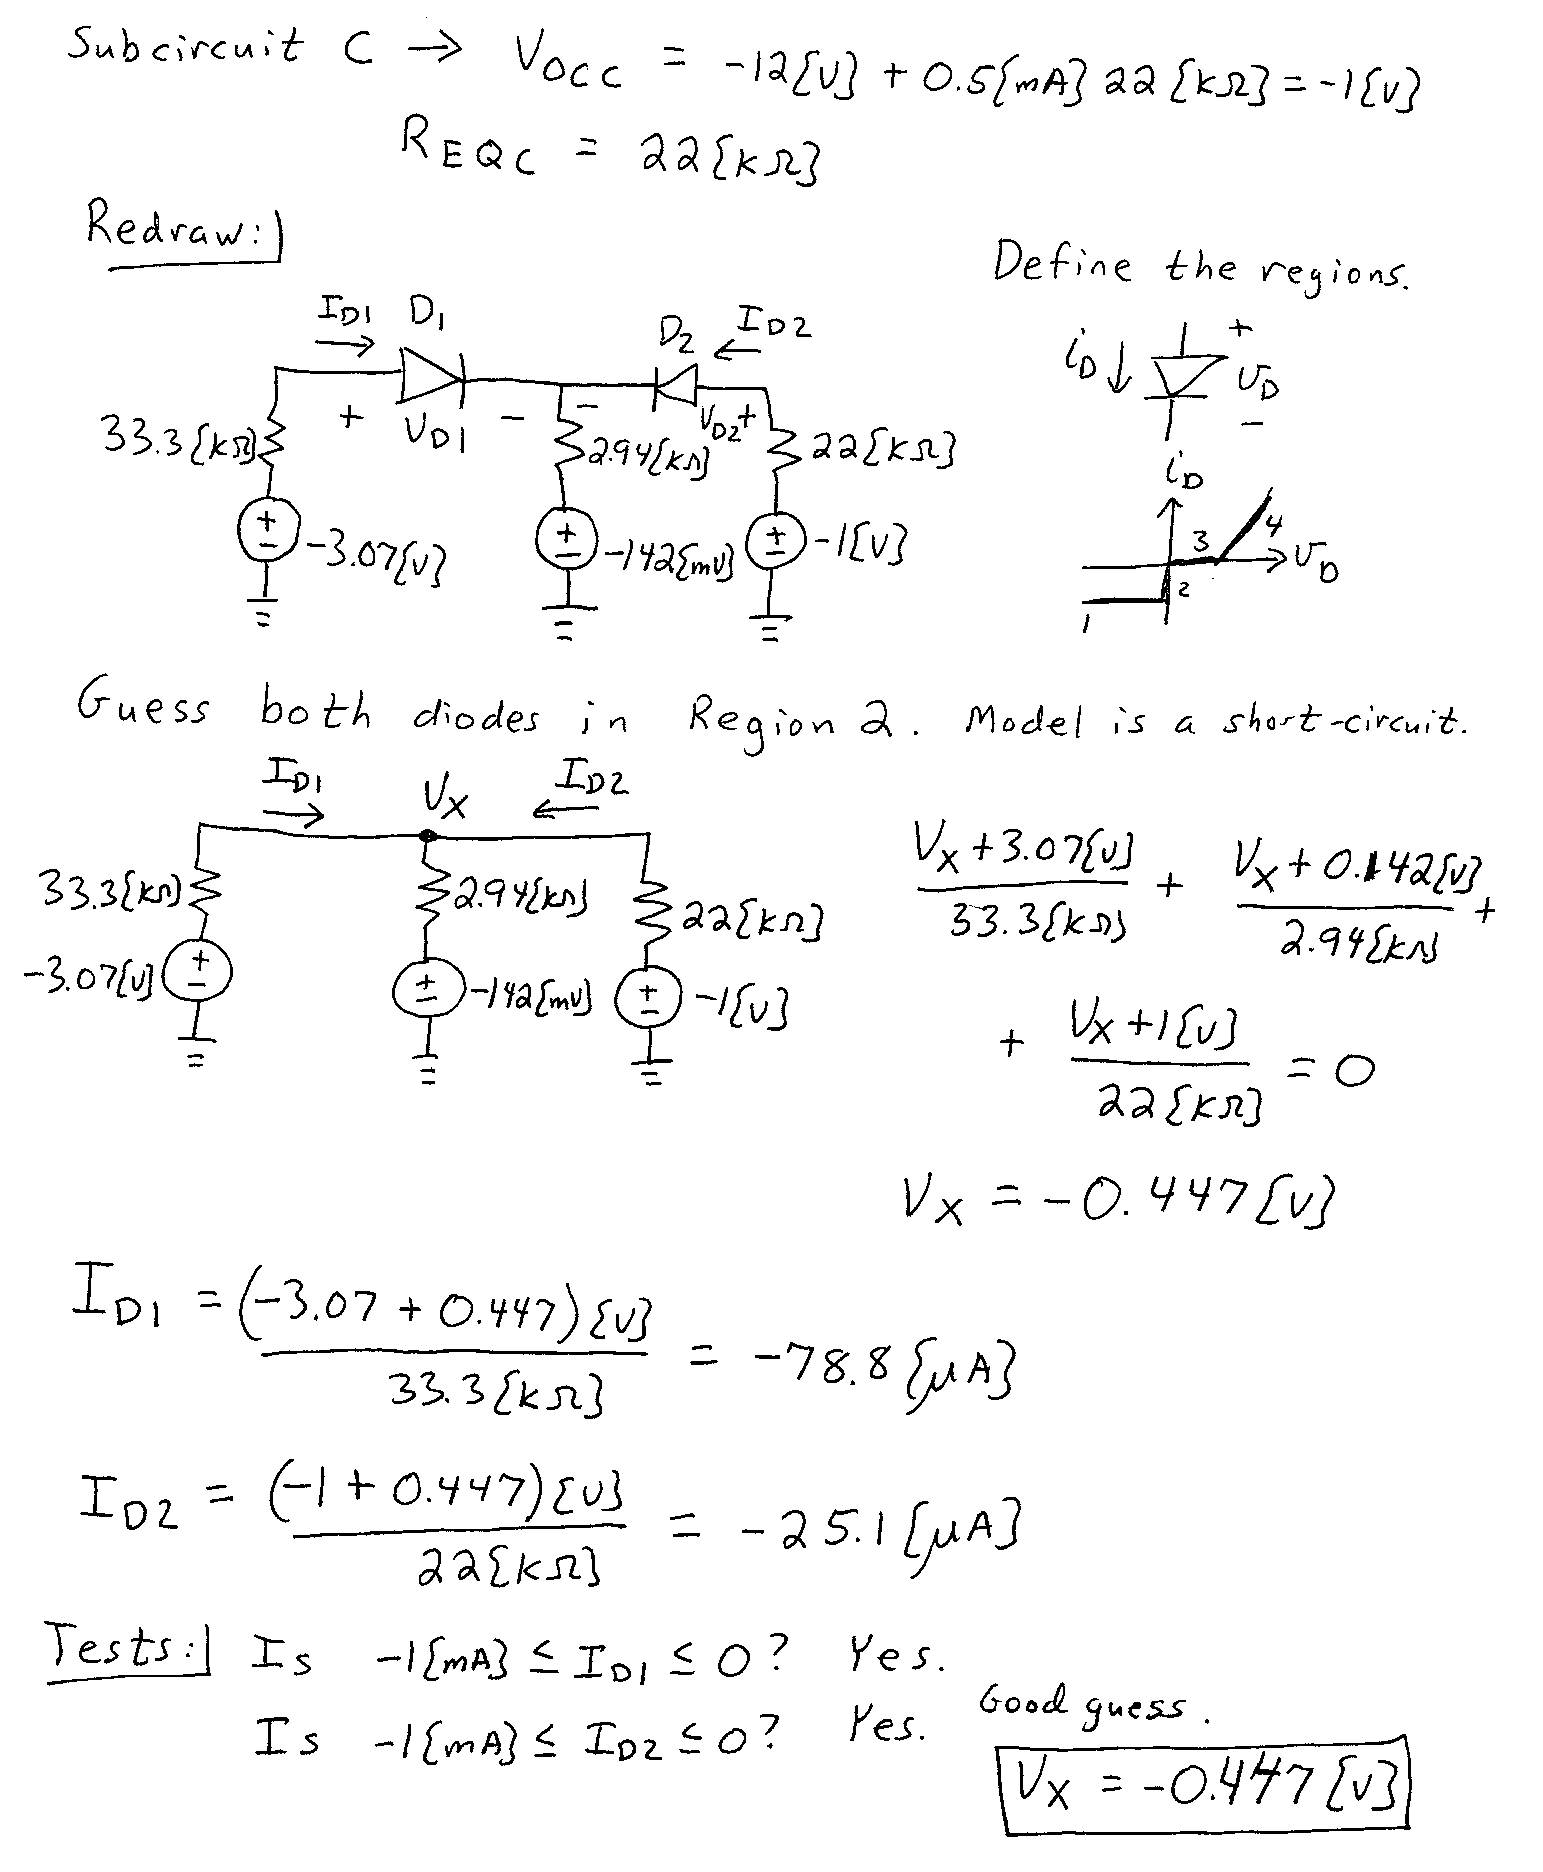 Subcircuit C → V_OCC = -12[V] + 0.5[mA] 22[kΩ] = -1[V]
R_EQC = 22[kΩ]
Redraw:
Define the regions.
I_D1 D_1
D_2 I_D2
i_D ↓ + v_D -
33.3[kΩ] + V_D1 - - 2.94[kΩ] V_D2 + 22[kΩ]
+ - -3.07[V]
+ - -142[mV]
+ - -1[V]
i_D
1 2 3 4 v_D
Guess both diodes in Region 2. Model is a short-circuit.
I_D1 V_X I_D2
33.3[kΩ] 2.94[kΩ] 22[kΩ]
-3.07[V] + - + - -142[mV] + - -1[V]
V_X + 3.07[V] / 33.3[kΩ] + V_X + 0.142[V] / 2.94[kΩ] +
+ V_X + 1[V] / 22[kΩ] = 0
V_X = -0.447[V]
I_D1 = (-3.07 + 0.447)[V] / 33.3[kΩ] = -78.8[μA]
I_D2 = (-1 + 0.447)[V] / 22[kΩ] = -25.1[μA]
Tests: Is -1[mA] ≤ I_D1 ≤ 0? Yes.
Is -1[mA] ≤ I_D2 ≤ 0? Yes.
Good guess.
V_X = -0.447[V]